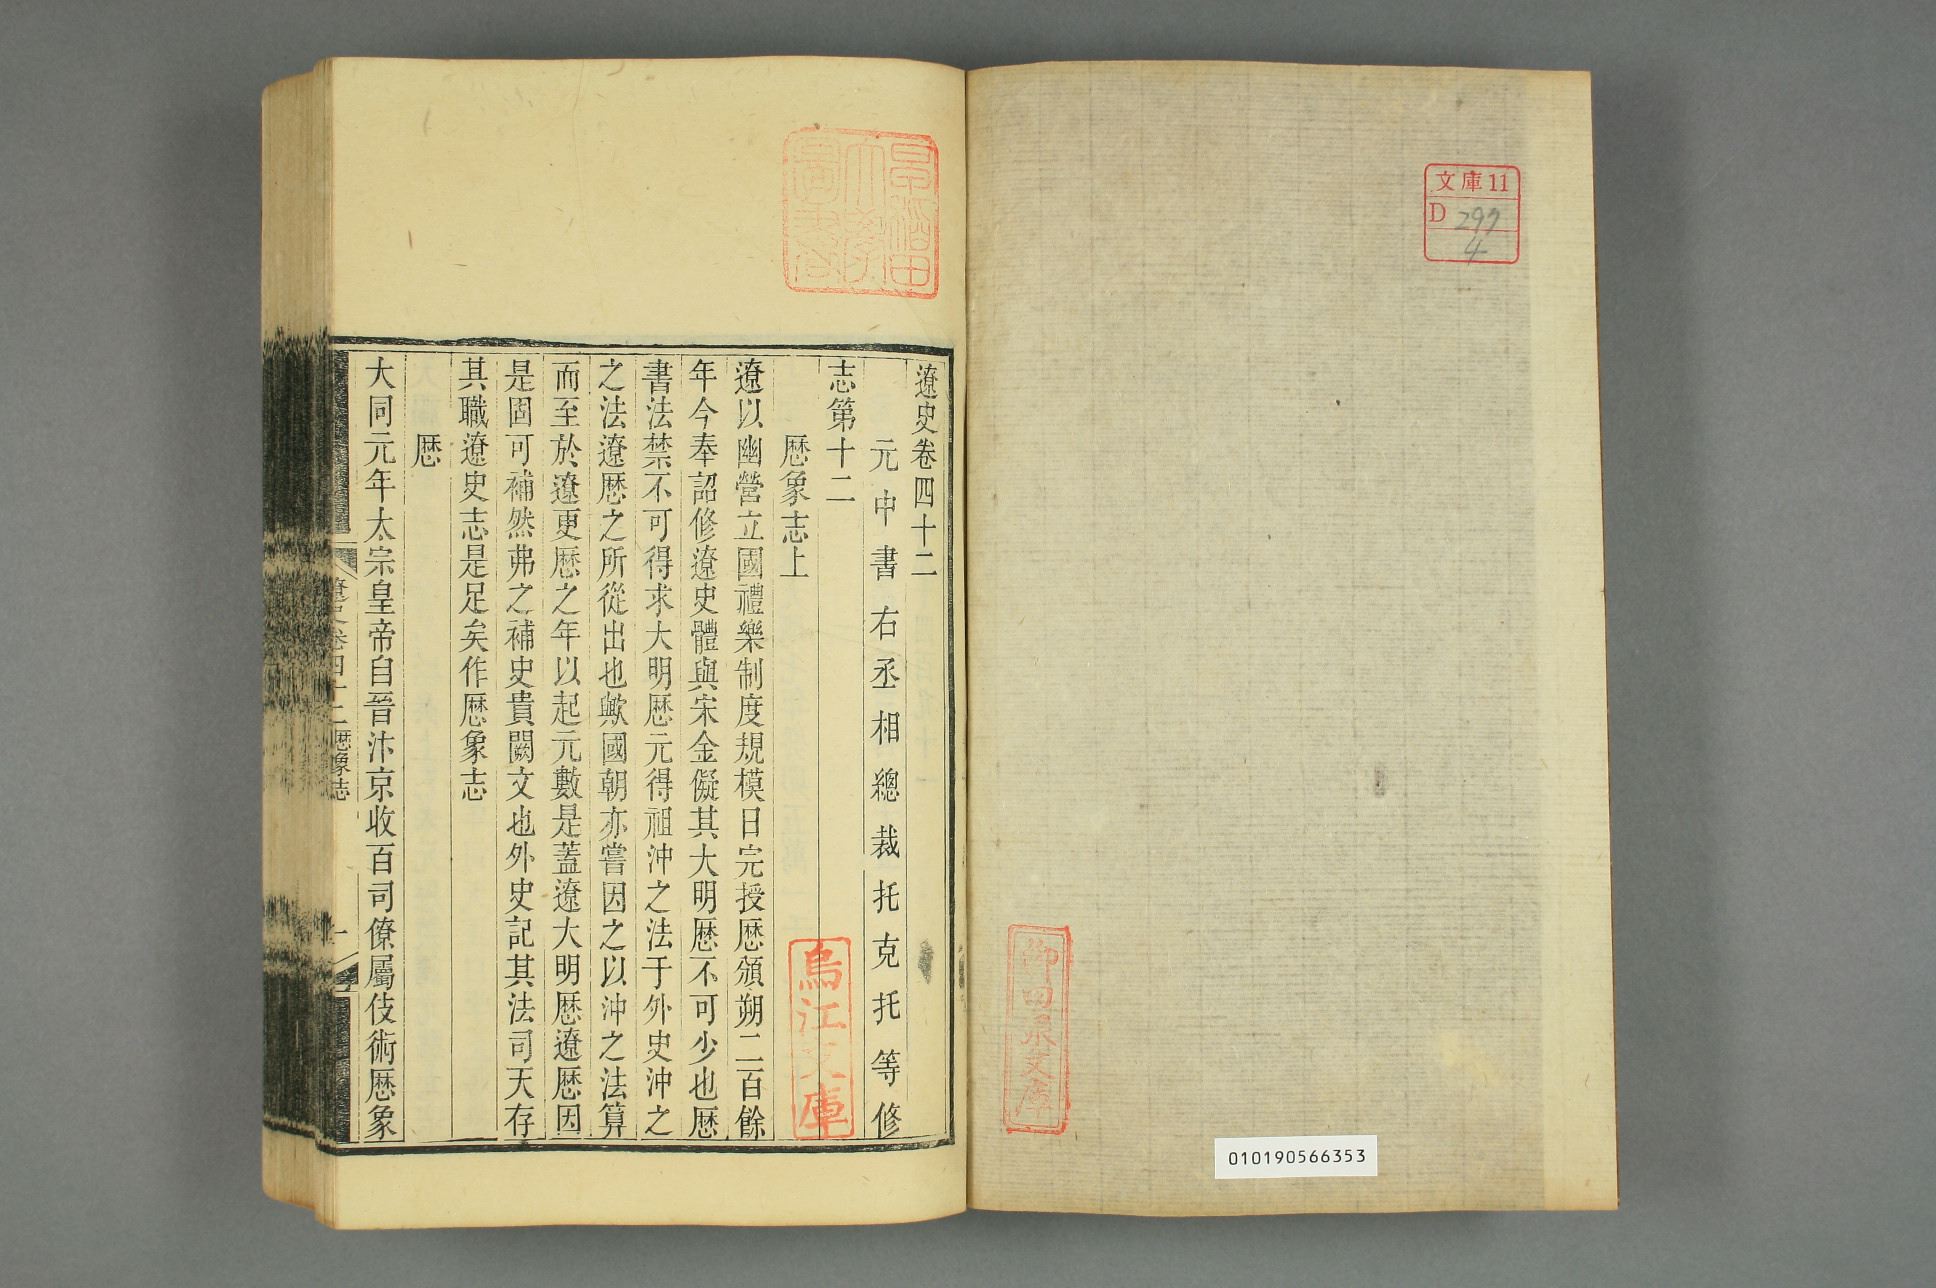 文庫11
D 297
4
柳田泉文庫
010190566353
早稲田
大學
圖書
遼史卷四十二
元中書右丞相總裁托克托等修
志第十二
歴象志上
烏江文庫
遼以幽營立國禮樂制度規模日完授歴頒朔二百餘
年今奉詔修遼史體與宋金儗其大明歴不可少也歴
書法禁不可得求大明歴元得祖沖之法于外史沖之
之法遼歴之所從出也歟國朝亦嘗因之以沖之法算
而至於遼更歴之年以起元數是蓋遼大明歴遼歴因
是固可補然弗之補史貴闕文也外史記其法司天存
其職遼史志是足矣作歴象志
歴
大同元年太宗皇帝自晉汴京收百司僚屬伎術歴象
遼史卷四十二歴象志
一